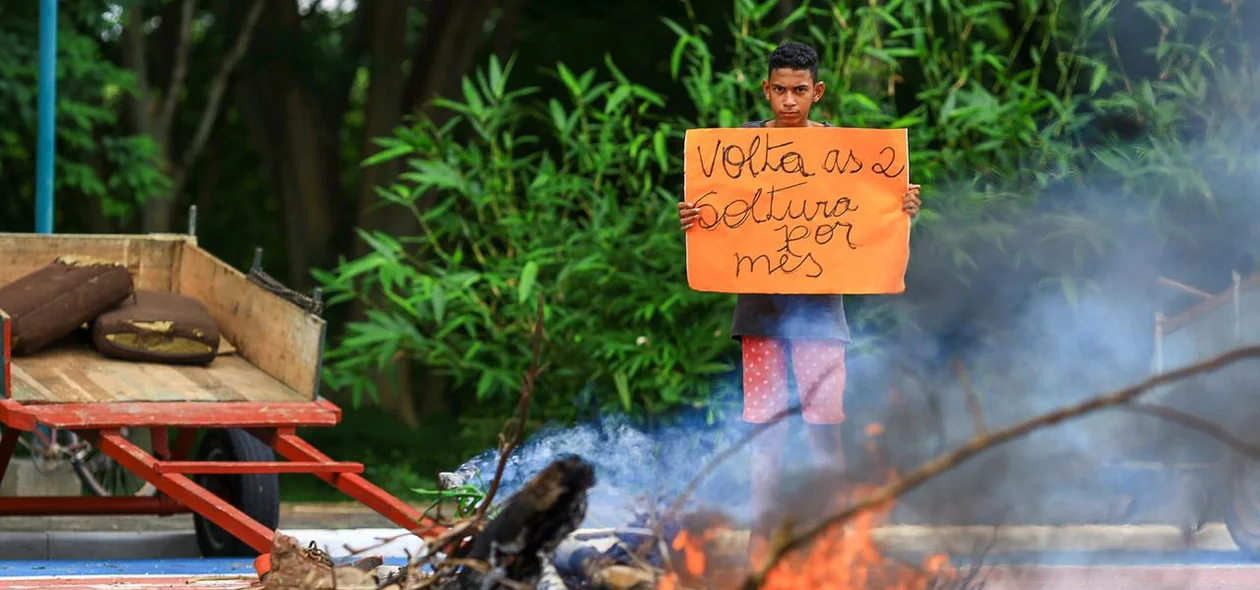 Volta as 2
Soltura
por
mês